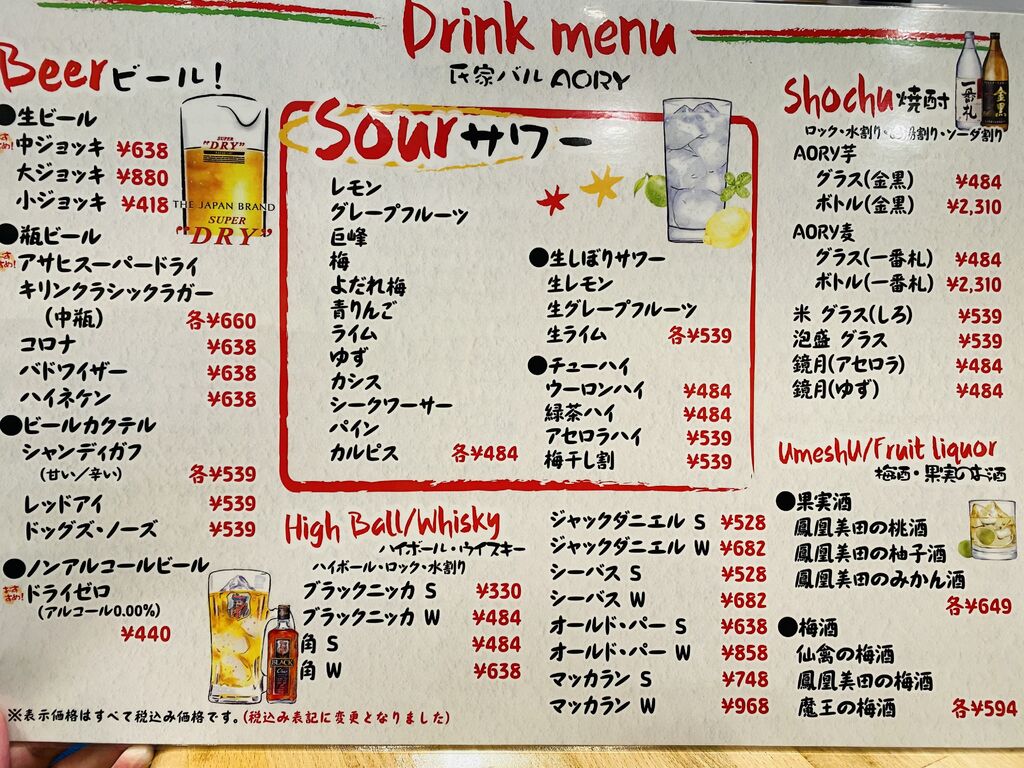 Drink menu
氏家バル AORY
Beer ビール!
●生ビール
おすすめ! 中ジョッキ ¥638
大ジョッキ ¥880
小ジョッキ ¥418
SUPER
"DRY"
THE JAPAN BRAND
SUPER
"DRY"
●瓶ビール
おすすめ! アサヒスーパードライ
キリンクラシックラガー
(中瓶) 各¥660
コロナ ¥638
バドワイザー ¥638
ハイネケン ¥638
●ビールカクテル
シャンディガフ
(甘い/辛い) 各¥539
レッドアイ ¥539
ドッグズ・ノーズ ¥539
●ノンアルコールビール
おすすめ! ドライゼロ
(アルコール0.00%)
¥440
Sour サワー
レモン
グレープフルーツ
巨峰
梅
よだれ梅
青りんご
ライム
ゆず
カシス
シークワーサー
パイン
カルピス 各¥484
●生しぼりサワー
生レモン
生グレープフルーツ
生ライム 各¥539
●チューハイ
ウーロンハイ ¥484
緑茶ハイ ¥484
アセロラハイ ¥539
梅干し割 ¥539
High Ball/Whisky
ハイボール・ウイスキー
ハイボール・ロック・水割り
ブラックニッカ S ¥330
ブラックニッカ W ¥484
角 S ¥484
角 W ¥638
BLACK
ジャックダニエル S ¥528
ジャックダニエル W ¥682
シーバス S ¥528
シーバス W ¥682
オールド・パー S ¥638
オールド・パー W ¥858
マッカラン S ¥748
マッカラン W ¥968
Shochu 焼酎
一番札
金黒
ロック・水割り・ 割り・ソーダ割り
AORY芋
グラス(金黒) ¥484
ボトル(金黒) ¥2,310
AORY麦
グラス(一番札) ¥484
ボトル(一番札) ¥2,310
米 グラス(しろ) ¥539
泡盛 グラス ¥539
鏡月(アセロラ) ¥484
鏡月(ゆず) ¥484
UmeshU/Fruit liquor
梅酒・果実のお酒
●果実酒
鳳凰美田の桃酒
鳳凰美田の柚子酒
鳳凰美田のみかん酒
各¥649
●梅酒
仙禽の梅酒
鳳凰美田の梅酒
魔王の梅酒 各¥594
※表示価格はすべて税込み価格です。(税込み表記に変更となりました)